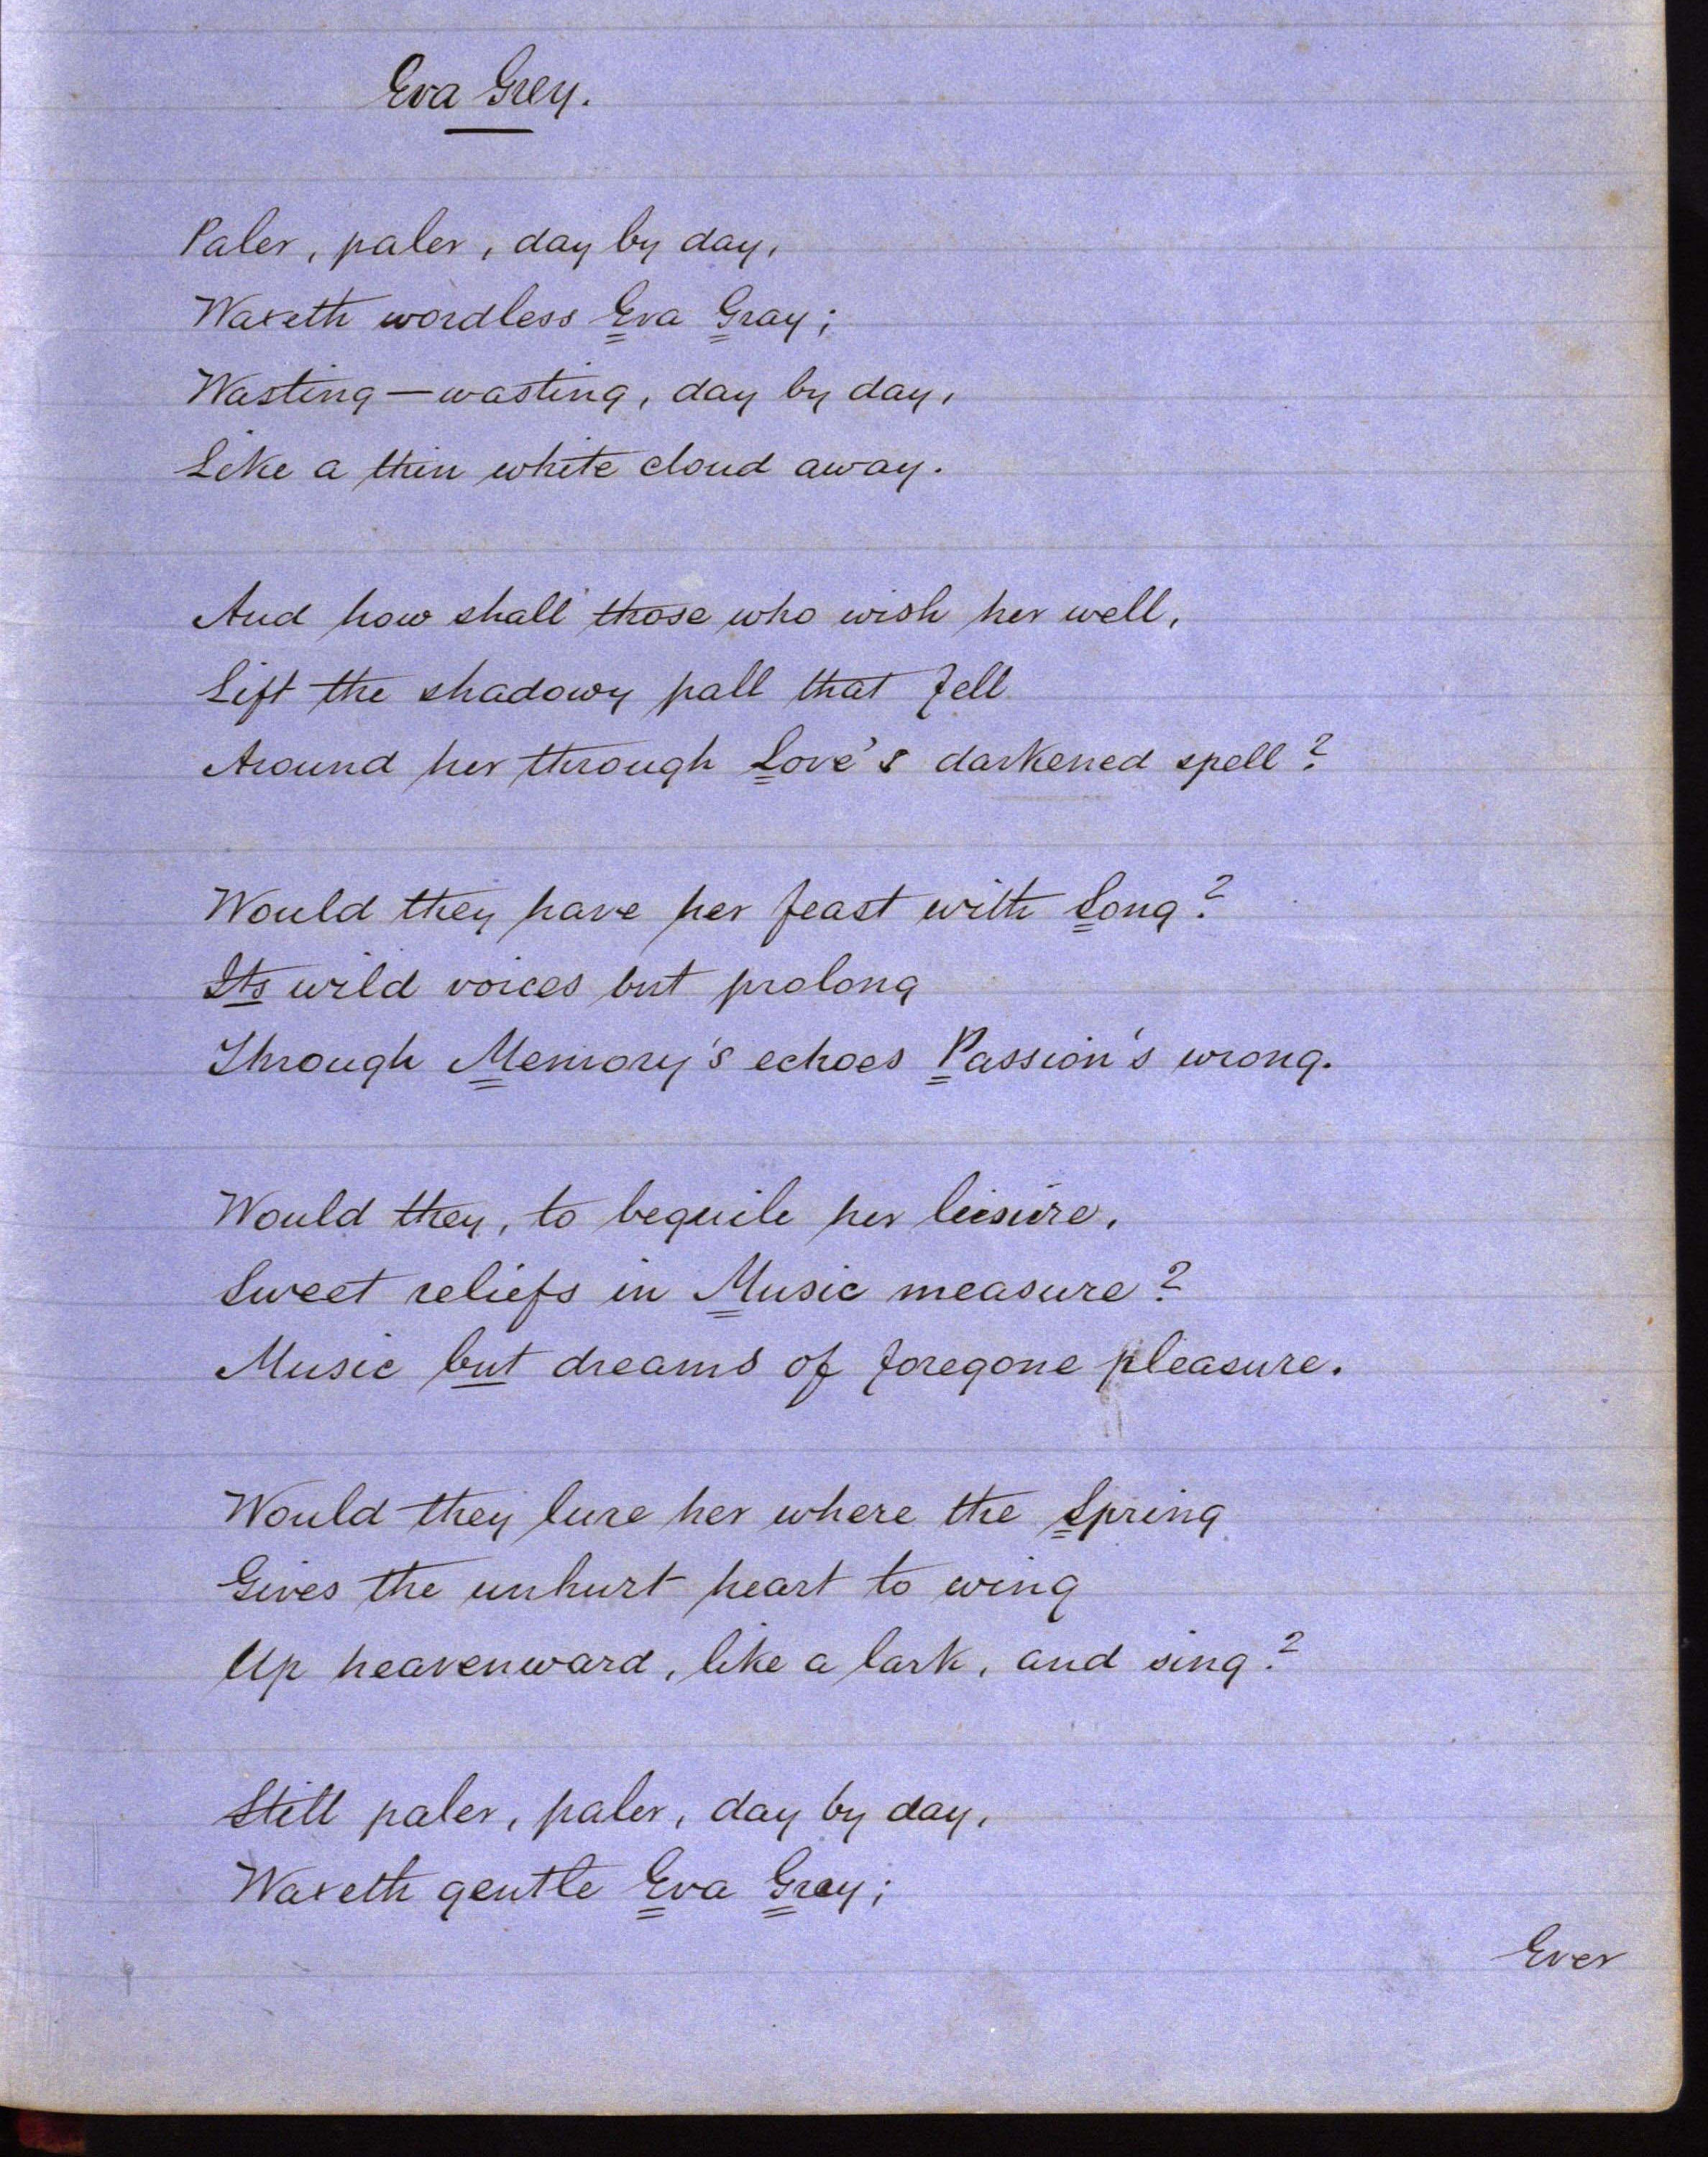 Eva Grey.
Paler, paler, day by day,
Waxeth wordless Eva Gray;
Wasting—wasting, day by day,
Like a thin white cloud away.
And how shall those who wish her well,
Lift the shadowy pall that fell
Around her through Love's darkened spell?
Would they have her feast with Song?
Its wild voices but prolong
Through Memory's echoes Passion's wrong.
Would they, to beguile her leisure,
Sweet reliefs in Music measure?
Music but dreams of foregone pleasure.
Would they lure her where the Spring
Gives the unhurt heart to wing
Up heavenward, like a lark, and sing?
Still paler, paler, day by day,
Waxeth gentle Eva Gray;
Ever